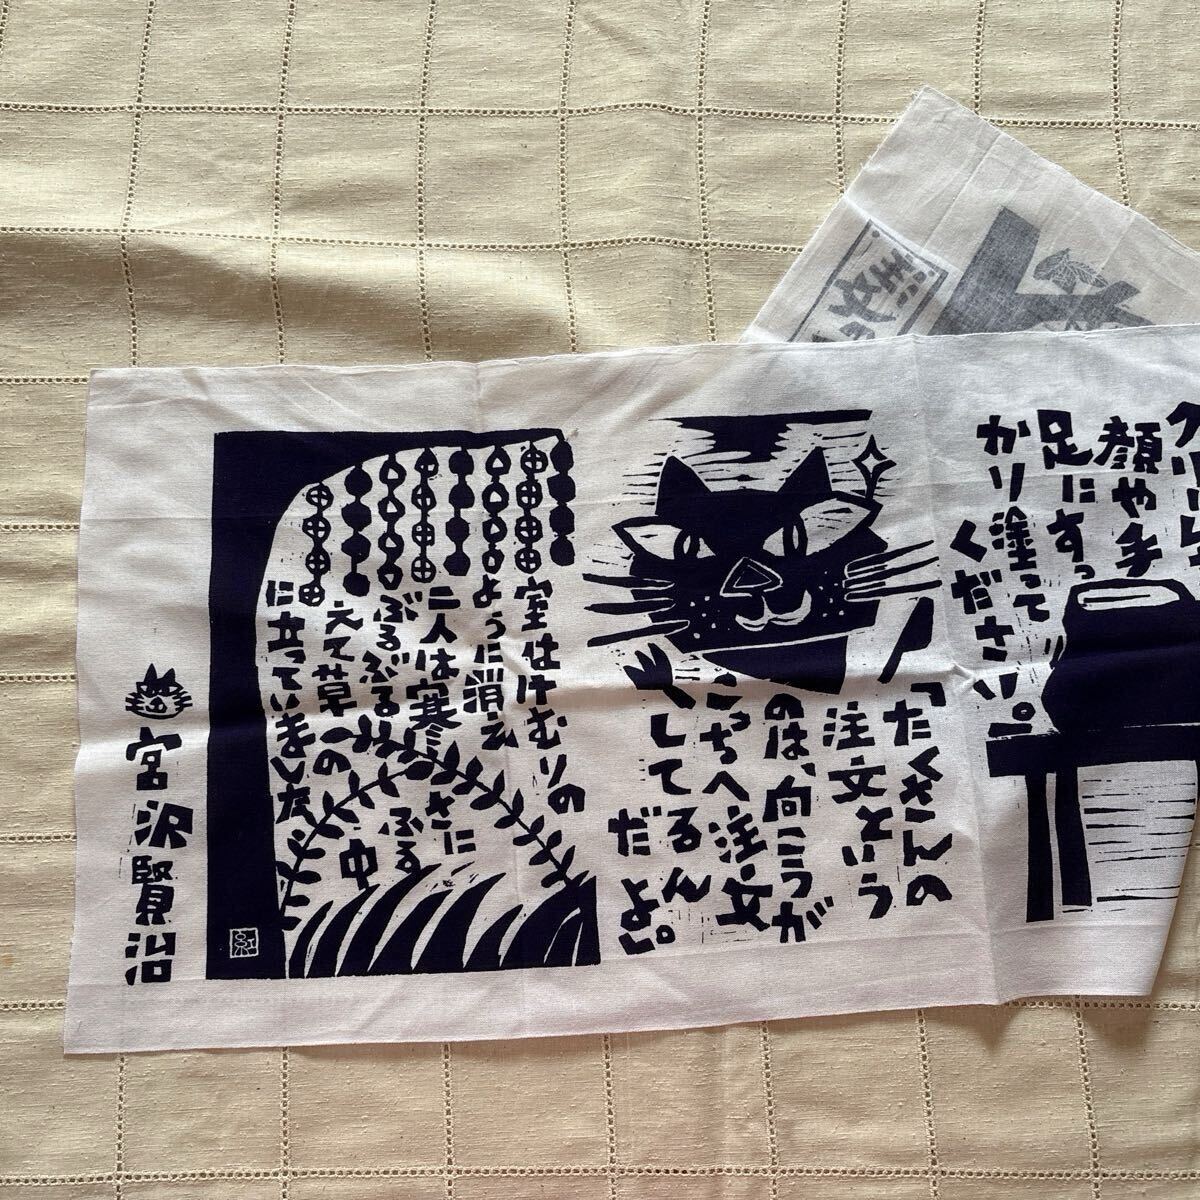 クリームを
顔や手
足にすっ
かり塗って
ください。
「たくさんの
注文という
のは、向こうが
こっちへ注文
してるん
だよ。
室はけむりの
ように消え
二人は寒さに
ぶるぶるふる
えて草の中
に立っていました
紅
宮沢賢治